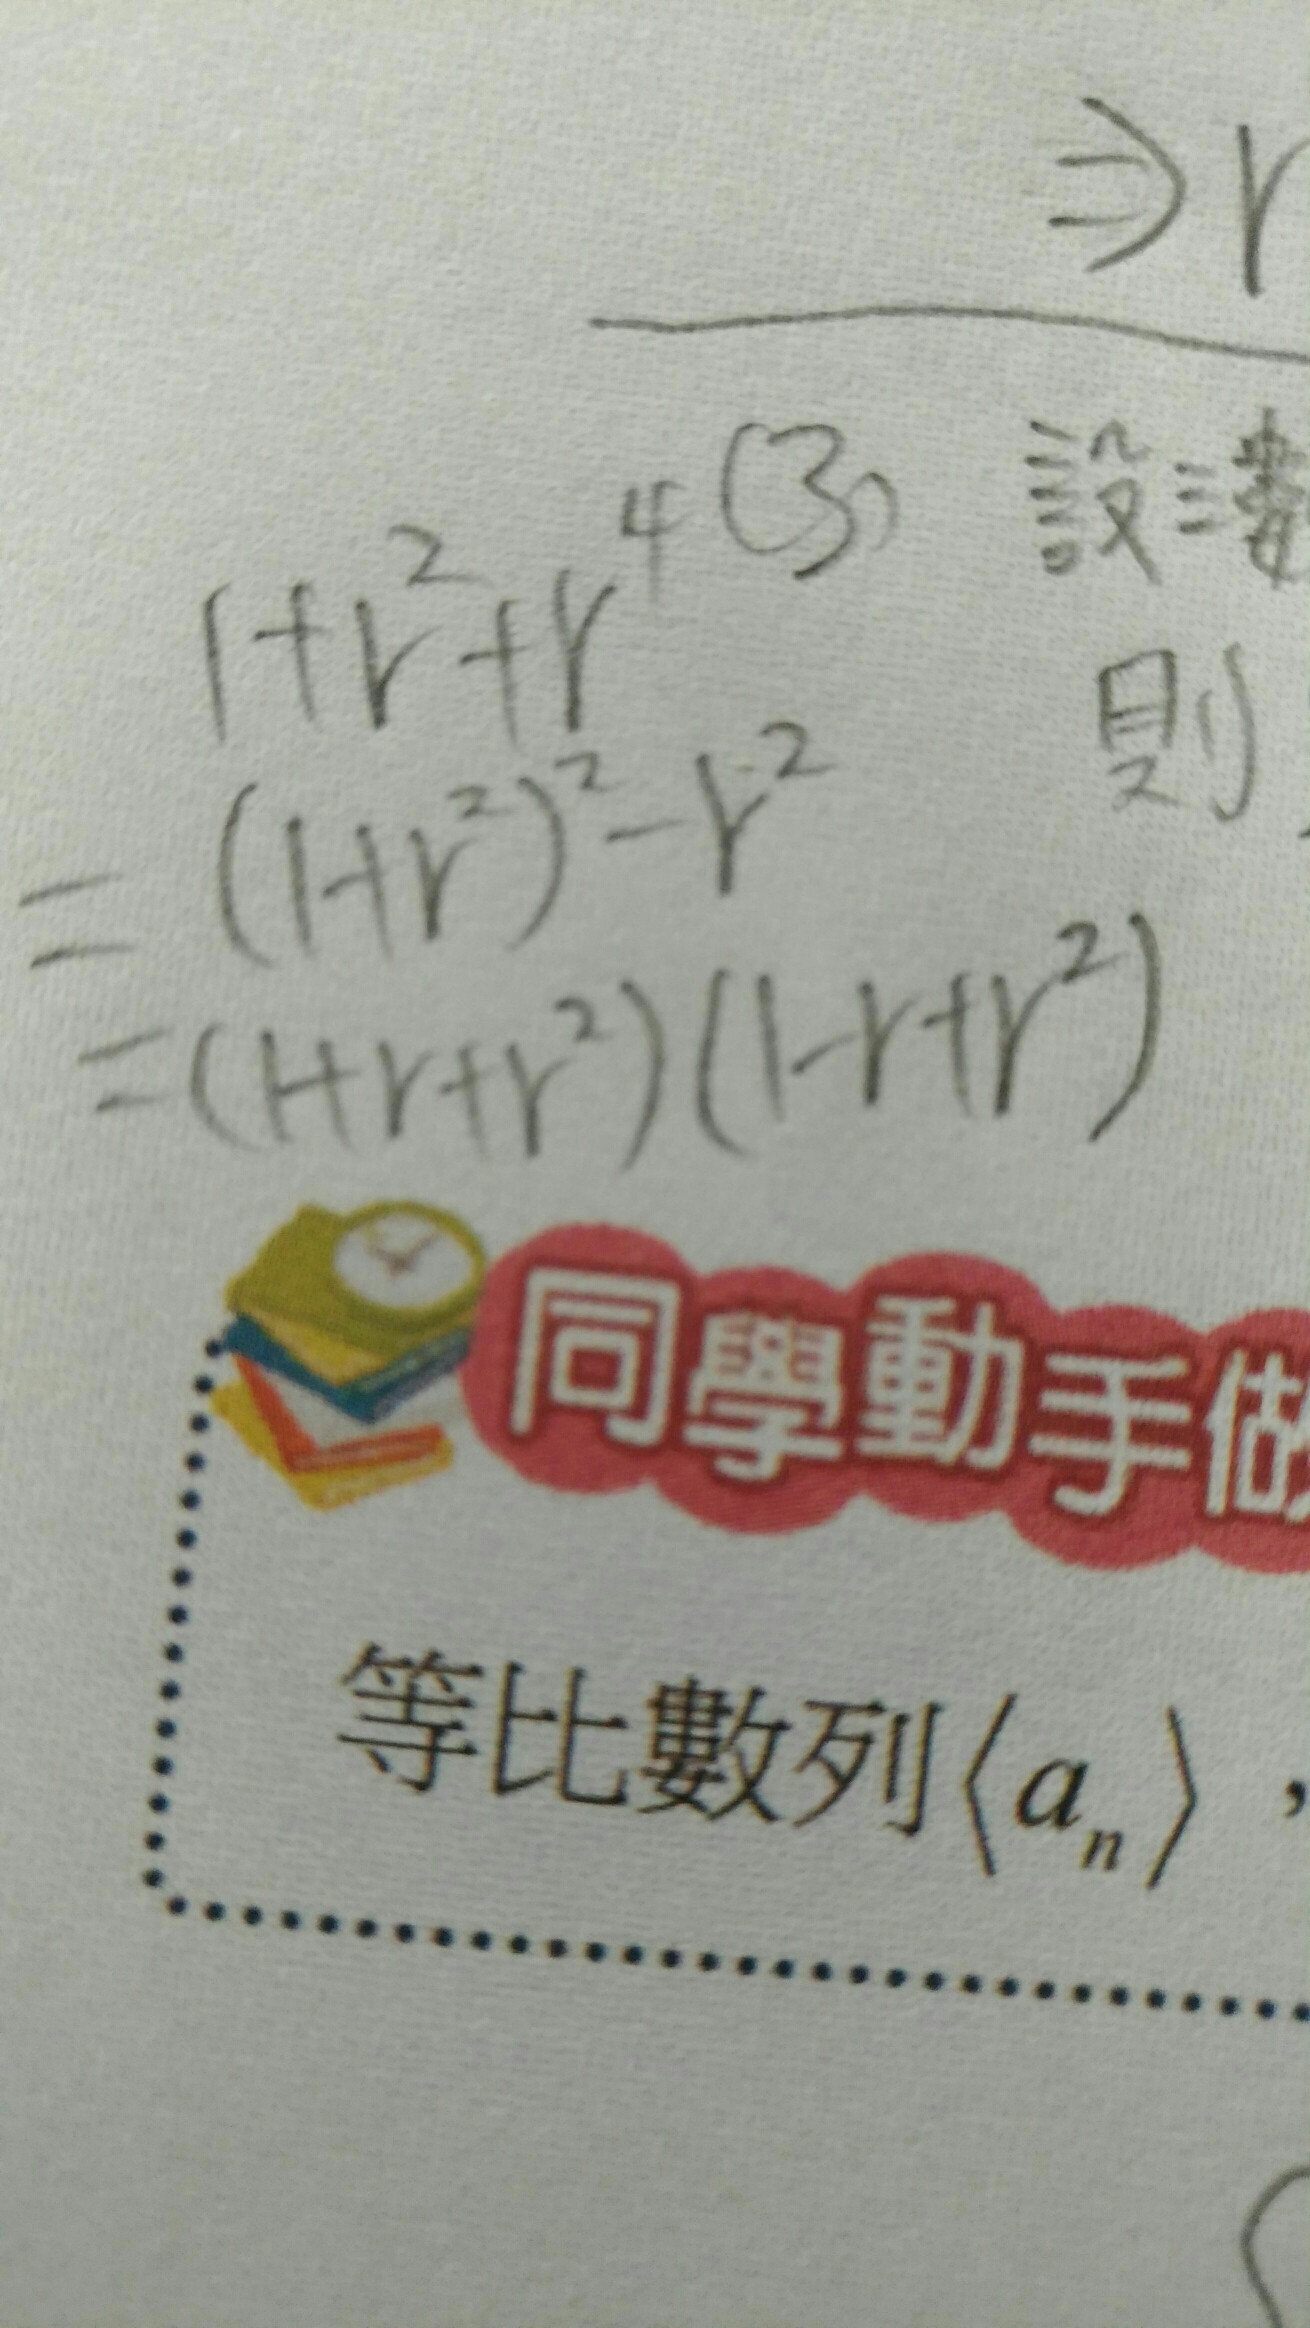 ⇒r
(3) 設
則
1+r²+r⁴
= (1+r²)²-r²
=(1+r+r²)(1-r+r²)
同學動手做
等比數列⟨aₙ⟩，